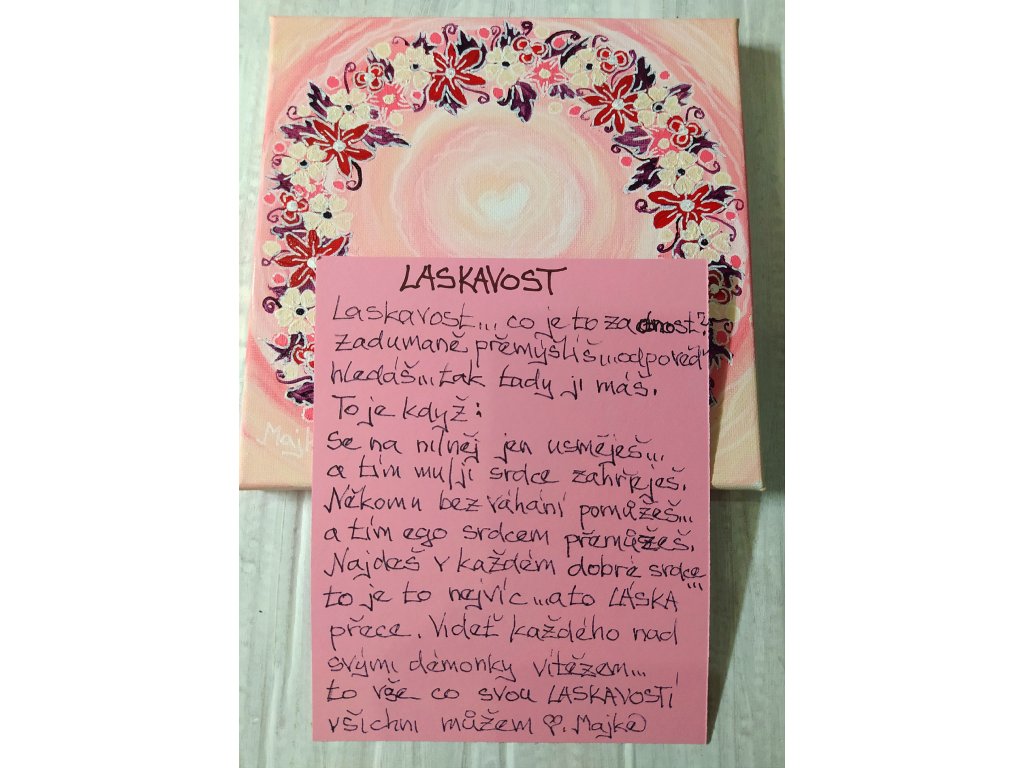 LASKAVOST
Laskavost... co je to za ctnost?
zadumaně přemýšlíš...odpověď
hledáš...tak tady ji máš.
To je když:
se na ni/něj jen usměješ...
a tím mu/jí srdce zahřeješ.
Někomu bez váhání pomůžeš...
a tím ego srdcem přemůžeš.
Najdeš v každém dobré srdce...
to je to nejvíc...a to LÁSKA
přece. Vidět každého nad
svými démonky vítězem...
to vše co svou LASKAVOSTÍ
všichni můžem ♡. Majka
Majk